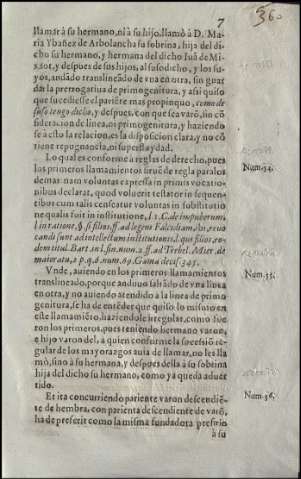 7
llamar à su hermano, ni à su hijo, llamò à D. Ma-
ria Ybañez de Arbolancha su sobrina, hija del di-
cho su hermano, y hermana del dicho Iuã de Mi-
xot, y despues de sus hijos, al susodicho, y los su-
yos, andãdo translineãdo de vna en otra, sin guar
dar la prerrogatiua de primogenitura, y assi quiso
que sucediesse el pariẽte mas propinquo, como de
suso tengo dicho, y despues, con que sea varõ, sin cõ
sideracion de linea, ni primogenitura, y haziendo
se a esto la relacion, es la disposicion clara, y no cõ
tiene repugnãcia, ni superfluydad.
Lo qual es conforme à reglas de derecho, pues
los primeros llamamientos siruẽ de regla para los
demas: nam voluntas expressa in primis vocatio-
nibus declarat, quod voluerit testator in sequen-
tibus cum talis censeatur voluntas in substitutio
ne qualis fuit in institutione, l 1. C. de impuberum,
l in ratione, §. si filius, ff. ad legem Falcidiam, ibi, reuo
candi sunt ad intellectum institutionis, l. quæ filios, eo
dem titul. Bart. in l. fin. num. 2. ff. ad Trebel. Mier. de
maioratu, 2. p. q. 6. num. 69. Gama decis. 345.
Vnde, auiendo en los primeros llamamientos
translineado, porque anduuo saltãdo de vna linea
en otra, y no auiendo atendido à la linea de primo
genitura, se ha de entẽder que quiso lo mismo en
este llamamiẽto, haziendole irregular, como fue-
ron los primeros, pues teniendo hermano varon,
e hijo varon del, a quien conforme la sucessiõ re-
gular de los mayorazgos auia de llamar, no les lla
mò, sino à su hermana, y despues della à su sobrina
hija del dicho su hermano, como ya queda aduer
tido.
Et ita concurriendo pariente varon descendiẽ-
te de hembra, con parienta descendiente de varõ,
ha de preferir como la misma fundadora prefirio
à su
Num. 34.
Num. 35.
Num. 36.